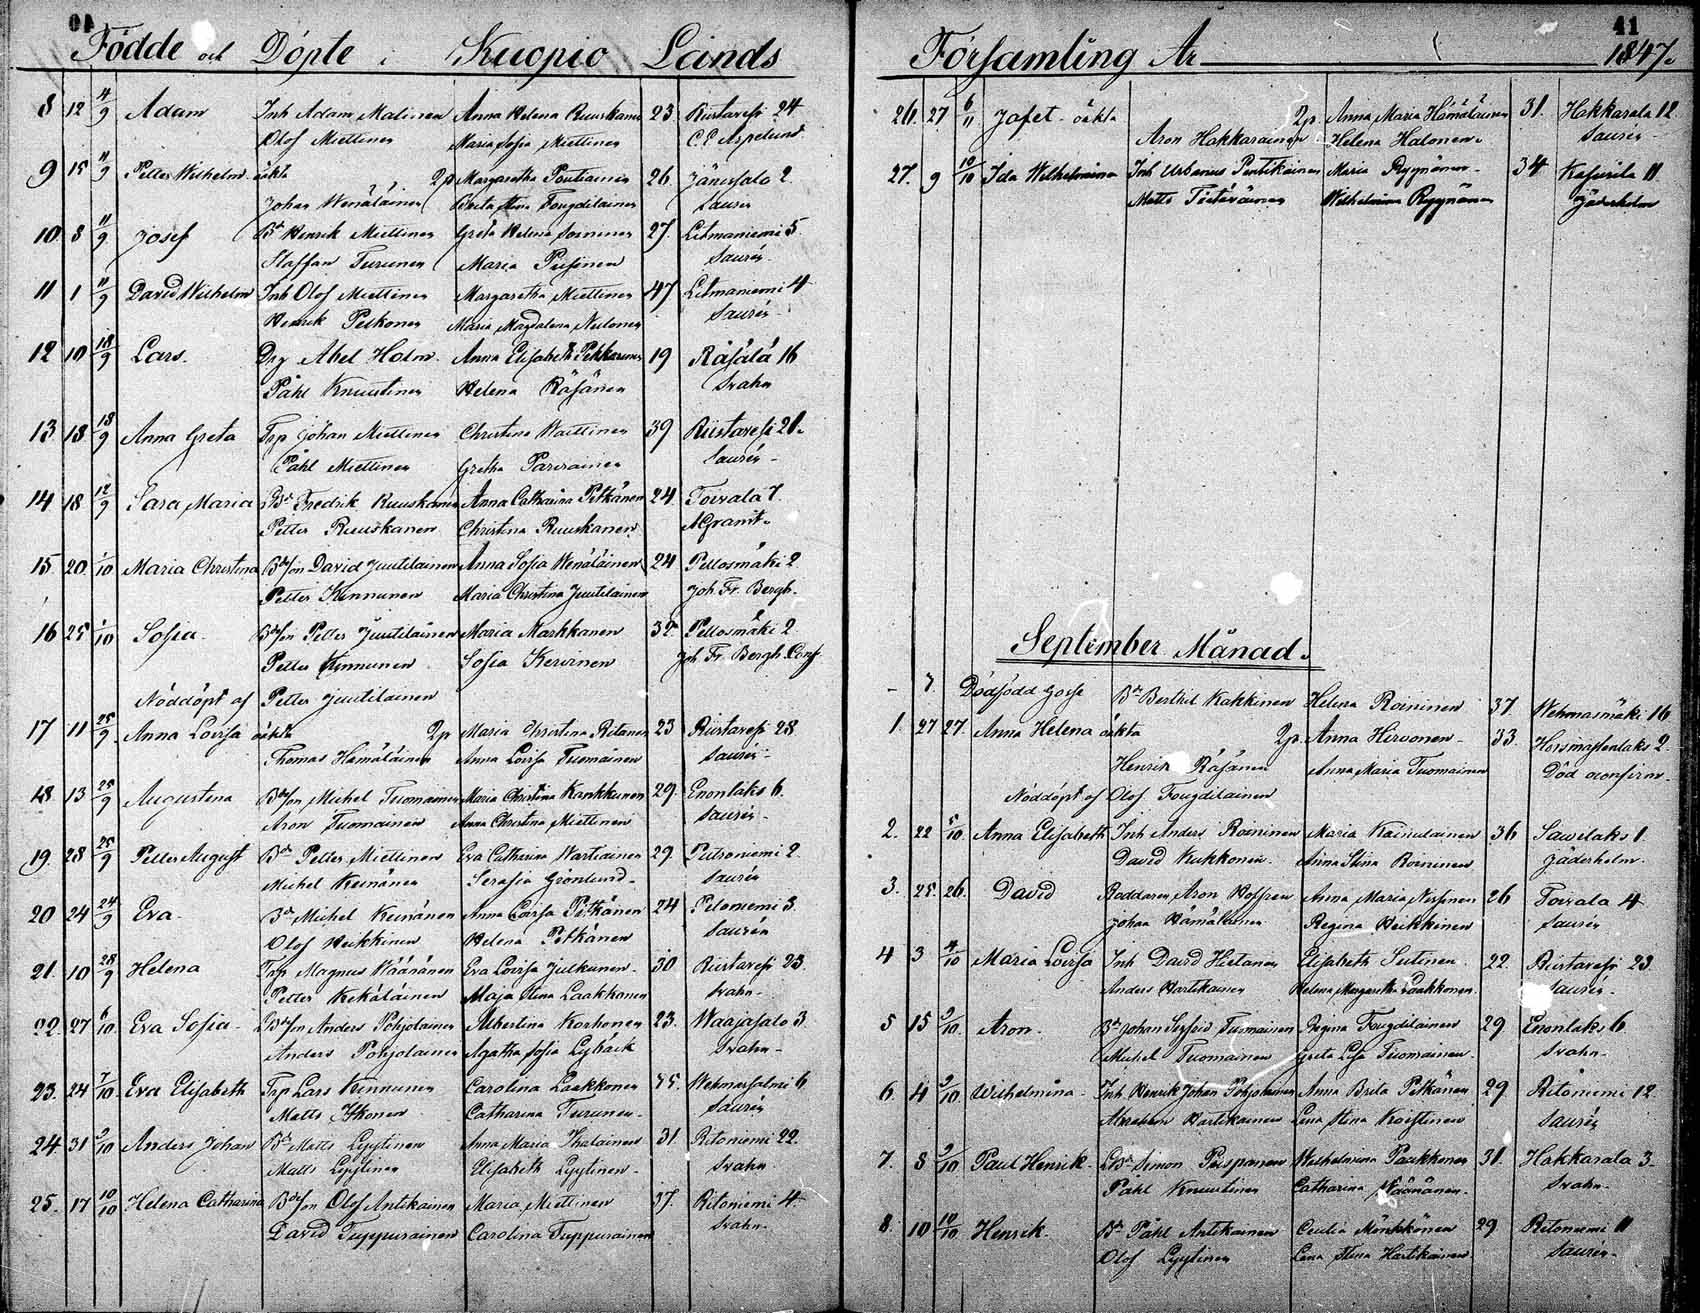 40
Födde och Döpte i Kuopio Lands
8 12 14/9 Adam Inh Adam Malinen Anna Helena Ruuskanen 23 Riistavesi 24
Olof Miettinen Maria Sofia Miettinen C.E. Aspelund
9 15 11/9 Petter Wilhelm oäkta 2p Margaretha Poutiainen 26 Jänissalo 2
Johan Wänäläinen Brita Stina Fougdilainen Saurén
10 8 11/9 Josef Bd Henrik Miettinen Greta Helena Soininen 27 Litmaniemi 5
Staffan Turunen Maria Pusinen Saurén
11 1 11/9 David Wilhelm Inh Olof Miettinen Margaretha Miettinen 47 Litmaniemi 4
Henrik Pelkonen Maria Magdalena Neulonen Saurén
12 10 18/9 Lars Drg Abel Holm Anna Elisabeth Pekkarinen 19 Räsälä 16
Påhl Knuutinen Helena Räsänen Svahn
13 13 18/9 Anna Greta Trp Johan Miettinen Christina Waittinen 39 Riistavesi 21
Påhl Miettinen Gretha Parviainen Saurén
14 18 12/9 Sara Maria Bd Fredrik Ruuskanen Anna Catharina Pitkänen 24 Toivala 7
Petter Ruuskanen Christina Ruuskanen A Granit
15 20 1/10 Maria Christina Bdeson David Juutilainen Anna Sofia Wenäläinen 24 Pellosmäki 2
Petter Kinnunen Maria Christina Juutilainen Joh. Fr. Bergh
16 25 1/10 Sofia Bdeson Petter Juutilainen Maria Markkanen 32 Pellosmäki 2
Petter Kinnunen Sofia Kervinen Joh. Fr. Bergh Conf
Nöddöpt af Petter Juutilainen
17 11 25/9 Anna Lovisa oäkta 2p Maria Christina Ritanen 23 Riistavesi 28
Thomas Hämäläinen Anna Lovisa Tuomainen Saurén
18 13 25/9 Augustena Bdeson Michel Tuomainen Maria Christina Kankkunen 29 Enonlaks 6
Aron Tuomainen Anna Christina Miettinen Saurén
19 28 25/9 Petter August Bd Petter Miettinen Eva Catharina Wartiainen 29 Putroniemi 2
Michel Keinänen Serafia Grönlund Saurén
20 24 24/9 Eva Bd Michel Keinänen Anna Lovisa Pitkänen 24 Pelonemi 3
Olof Heikkinen Helena Pitkänen Saurén
21 10 28/9 Helena Trp Magnus Väänänen Eva Lovisa Julkunen 30 Riistavesi 23
Petter Kekäläinen Maja Stina Laakkonen Svahn
22 27 6/10 Eva Sofia Bdeson Anders Pohjolainen Albertina Korhonen 23 Waajasalo 3
Anders Pohjolainen Agatha Sofia Lybäck Svahn
23 24 7/10 Eva Elisabeth Trp Lars Kinnunen Carolina Laakkonen 45 Wehmersalmi 6
Matts Ikonen Catharina Turunen Saurén
24 31 9/10 Anders Johan Bd Matts Lyytinen Anna Maria Ihalainen 31 Ritoniemi 22
Matts Lyytinen Elisabeth Lyytinen Svahn
25 17 10/10 Helena Catharina Bdeson Olof Antikainen Maria Miettinen 37 Ritoniemi 4
David Tuppurainen Carolina Tuppurainen Svahn
41
Församling År 1847.
26 27 6/11 Jafet oäkta 2p Anna Maria Hämäläinen 31 Hakkarala 12
Aron Hakkarainen Helena Halonen Saurén
27 9 10/10 Ida Wilhelmina Inh Urbanus Pentikäinen Maria Ryynänen 34 Kasurila 11
Matts Tietäväinen Wilhelmina Ryynänen Jäderholm
September Månad.
- 7 Dödfödd gosse Bd Berthil Kakkinen Helena Roininen 37 Wehmasmäki 16
1 27 27 Anna Helena oäkta 2p Anna Hirvonen 33 Horsmanlaks 2
Henrik Räsänen Anna Maria Tuomainen Död oconfirm
Nöddöpt af Olof Fougdilainen
2 22 5/10 Anna Elisabeth Inh Anders Roininen Maria Kainulainen 36 Savilaks 1
David Kukkonen Anna Stina Roininen Jäderholm
3 25 26 David Roddaren Aron Hoffren Anna Maria Nissinen 26 Toivala 4
Johan Hämäläinen Regina Heikkinen Saurén
4 3 4/10 Maria Lovisa Inh David Hietanen Elisabeth Sutinen 22 Riistavesi 23
Anders Hartikainen Helena Margaretha Laakkonen Saurén
5 15 9/10 Aron Bd Johan Sigfrid Tuomainen Regina Fougdilainen 29 Enonlaks 6
Michel Tuomainen Greta Lisa Tuomainen Svahn
6 4 9/10 Wilhelmina Inh Henrik Johan Pohjolainen Anna Brita Pitkänen 29 Ritoniemi 12
Abraham Hartikainen Lena Stina Kroistinen Saurén
7 8 9/10 Paul Henrik Bd Simon Pirspanen Wilhelmina Paukkonen 31 Hakkarala 3
Påhl Knuutinen Catharina Väänänen Svahn
8 10 10/10 Henrik Bd Påhl Antikainen Cecilia Mönkkönen 29 Ritoniemi 11
Olof Lyytinen Lena Stina Hartikainen Saurén